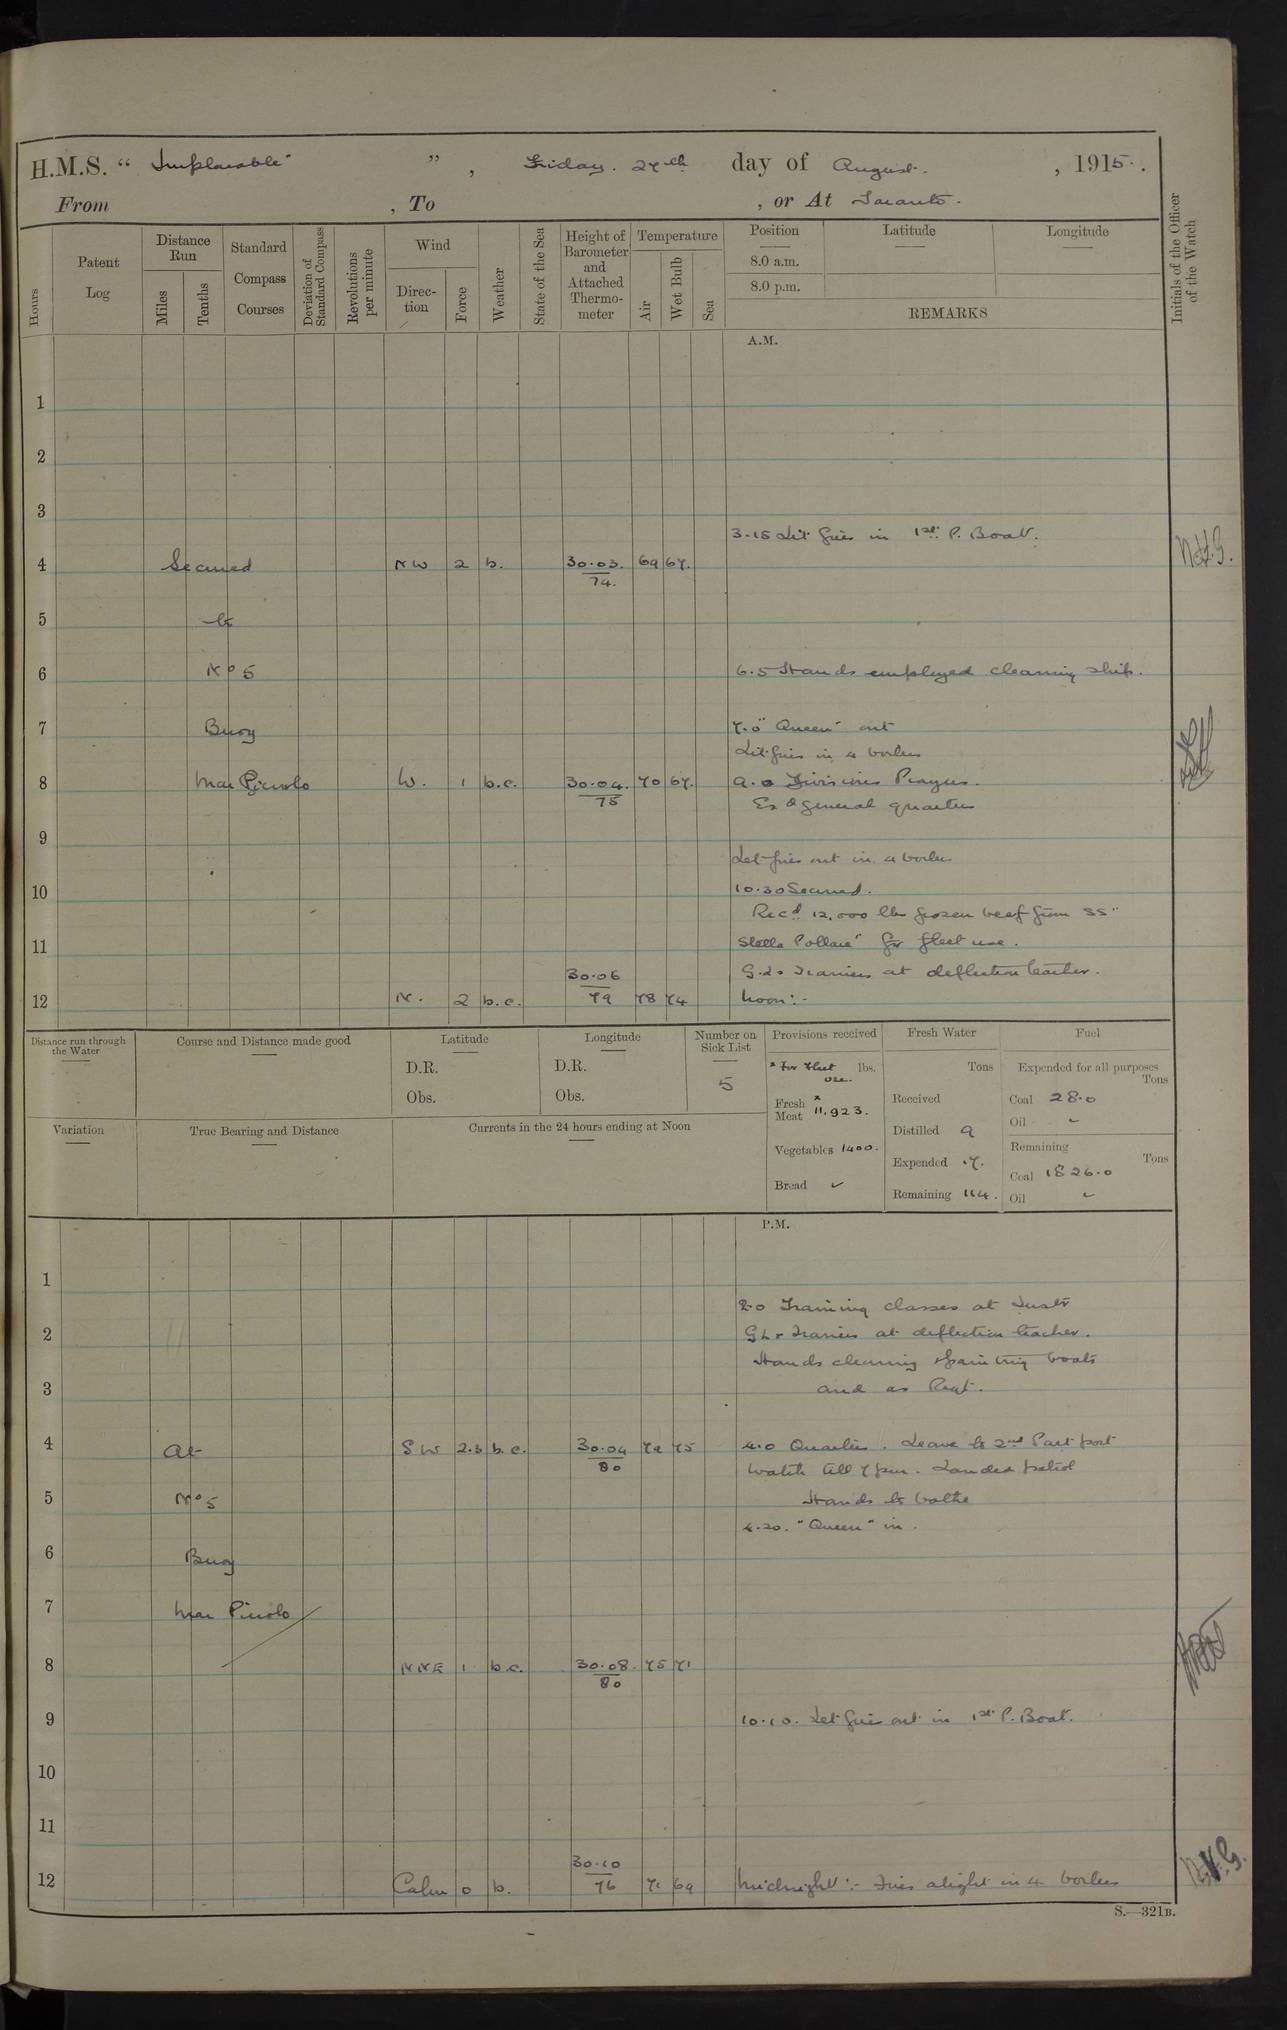 H.M.S. “ Implacable ” , Friday. 27th day of August. , 1915.
From , To , or At Taranto.
Hours
Patent Log
Distance Run
Miles
Tenths
Standard Compass Courses
Deviation of Standard Compass
Revolutions per minute
Wind
Direction
Force
Weather
State of the Sea
Height of Barometer and Attached Thermometer
Temperature
Air
Wet Bulb
Sea
Position
8.0 a.m.
8.0 p.m.
Latitude
Longitude
REMARKS
Initials of the Officer of the Watch
A.M.
1
2
3
3.15 Lit fires in 1st P. Boat.
4 Secured NW 2 b. 30.03. 69 67. N.H.G.
74.
5 to
6 No 5 6.5 Hands employed cleaning ship.
7 Buoy 7.0 "Queen" out
Lit fires in 4 boilers
8 Mar Piccolo W. 1 b.c. 30.04. 70 67. 9.0 Divisions Prayers.
75 Ex at general quarters
9
Let fires out in 4 boilers
10 10.30 Secured.
Recd 12,000 lbs frozen beef from SS "
11 Stella Pollare" for fleet use.
30.06 G.L. Trainers at deflection teacher.
12 N. 2 b.c. 79 78 74 Noon:-
Distance run through the Water
Course and Distance made good
Latitude
D.R.
Obs.
Longitude
D.R.
Obs.
Number on Sick List
5
Provisions received
x For Fleet use. lbs.
Fresh Meat x 11,923.
Vegetables 1400.
Bread ✓
Fresh Water
Tons
Received
Distilled 9
Expended 17.
Remaining 114.
Fuel
Expended for all purposes
Tons
Coal 28.0
Oil ✓
Remaining
Tons
Coal 1826.0
Oil ✓
Variation
True Bearing and Distance
Currents in the 24 hours ending at Noon
P.M.
1
2.0 Training classes at Instr
2 G.L. Trainers at deflection teacher.
Hands cleaning & painting boats
3 and as Reqt.
4 At SW 2.3 b.c. 30.04 79 75 4.0 Quarters. Leave to 2nd Part port
80 watch till 7 pm. Landed patrol
5 No 5 Hands to bathe
4.20. "Queen" in.
6 Buoy
7 Mar Piccolo
8 NNE 1 b.c. 30.08. 75 71
80
9 10.10. Let fires out in 1st P. Boat.
10
11
30.10
12 Calm 0 b. 76 71 69 Midnight:- Fires alight in 4 boilers
S.—321B.